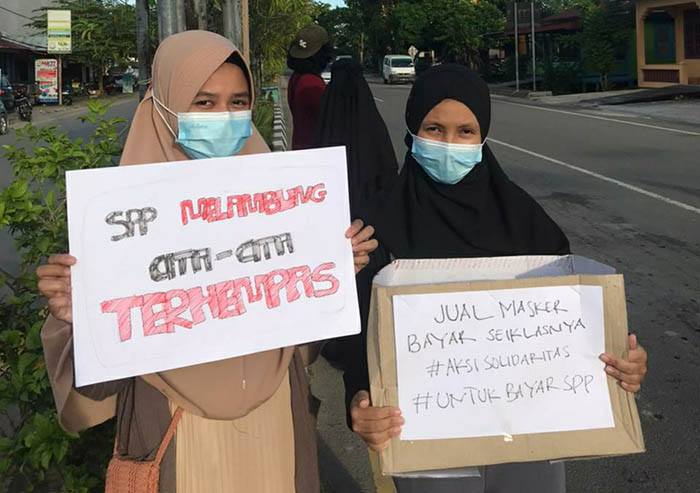 SPP MELAMBUNG
CITA-CITA
TERHEMPAS
JUAL MASKER
BAYAR SEIKLASNYA
#AKSI SOLIDARITAS
#UNTUK BAYAR SPP